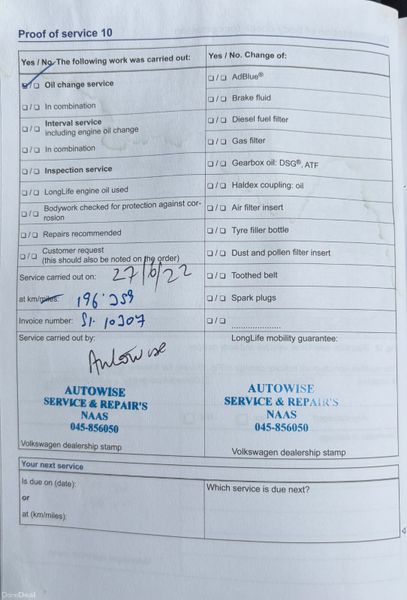 Proof of service 10
Yes / No. The following work was carried out:
☑/☐ Oil change service
☐/☐ In combination
☐/☐ Interval service
including engine oil change
☐/☐ In combination
☐/☐ Inspection service
☐/☐ LongLife engine oil used
☐/☐ Bodywork checked for protection against cor-
rosion
☐/☐ Repairs recommended
☐/☐ Customer request
(this should also be noted on the order)
Service carried out on: 27/6/22
at km/miles:
Invoice number: SI-10307
Service carried out by:
Autowise
AUTOWISE
SERVICE & REPAIR'S
NAAS
045-856050
Volkswagen dealership stamp
Yes / No. Change of:
☐/☐ AdBlue®
☐/☐ Brake fluid
☐/☐ Diesel fuel filter
☐/☐ Gas filter
☐/☐ Gearbox oil: DSG®, ATF
☐/☐ Haldex coupling: oil
☐/☐ Air filter insert
☐/☐ Tyre filler bottle
☐/☐ Dust and pollen filter insert
☐/☐ Toothed belt
☐/☐ Spark plugs
☐/☐ ....................
LongLife mobility guarantee:
AUTOWISE
SERVICE & REPAIR'S
NAAS
045-856050
Volkswagen dealership stamp
Your next service
Is due on (date):
or
at (km/miles):
Which service is due next?
DoneDeal